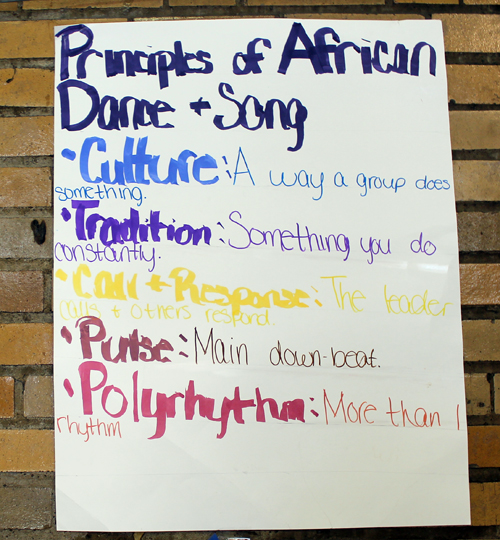 Principles of African
Dance + Song
• Culture: A way a group does
something.
• Tradition: Something you do
constantly.
• Call + Response: The leader
calls + others respond.
• Pulse: Main down-beat.
• Polyrhythm: More than 1
rhythm